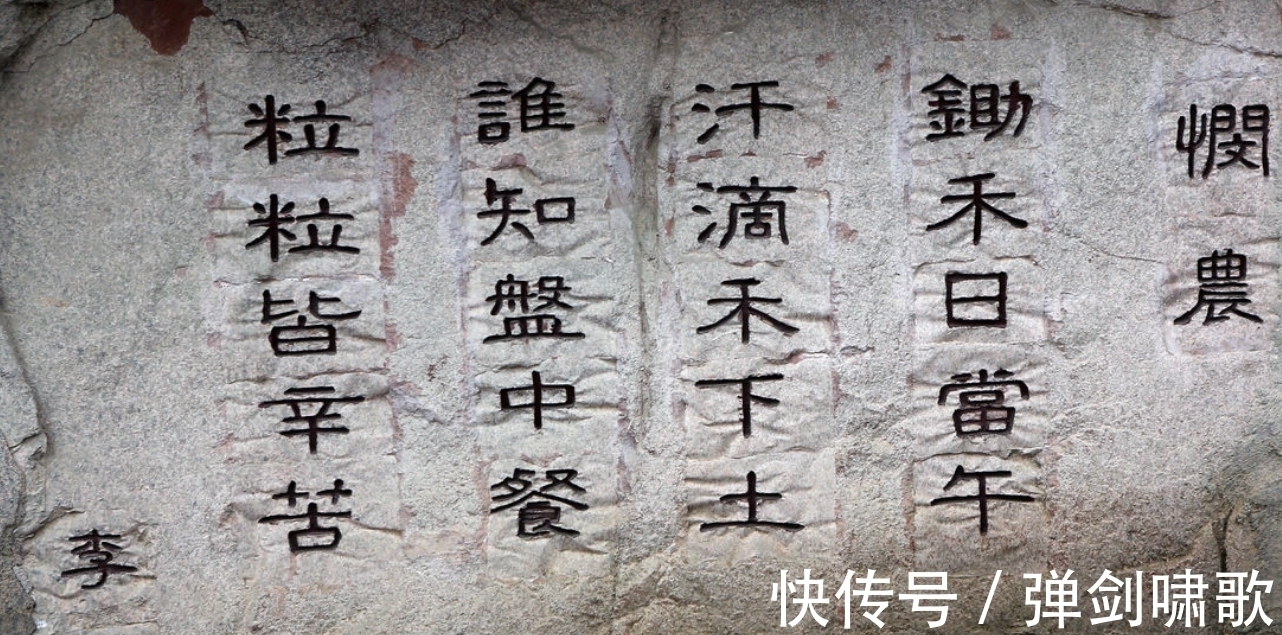 憫農
鋤禾日當午
汗滴禾下土
誰知盤中餐
粒粒皆辛苦
李
快传号 / 弹剑啸歌